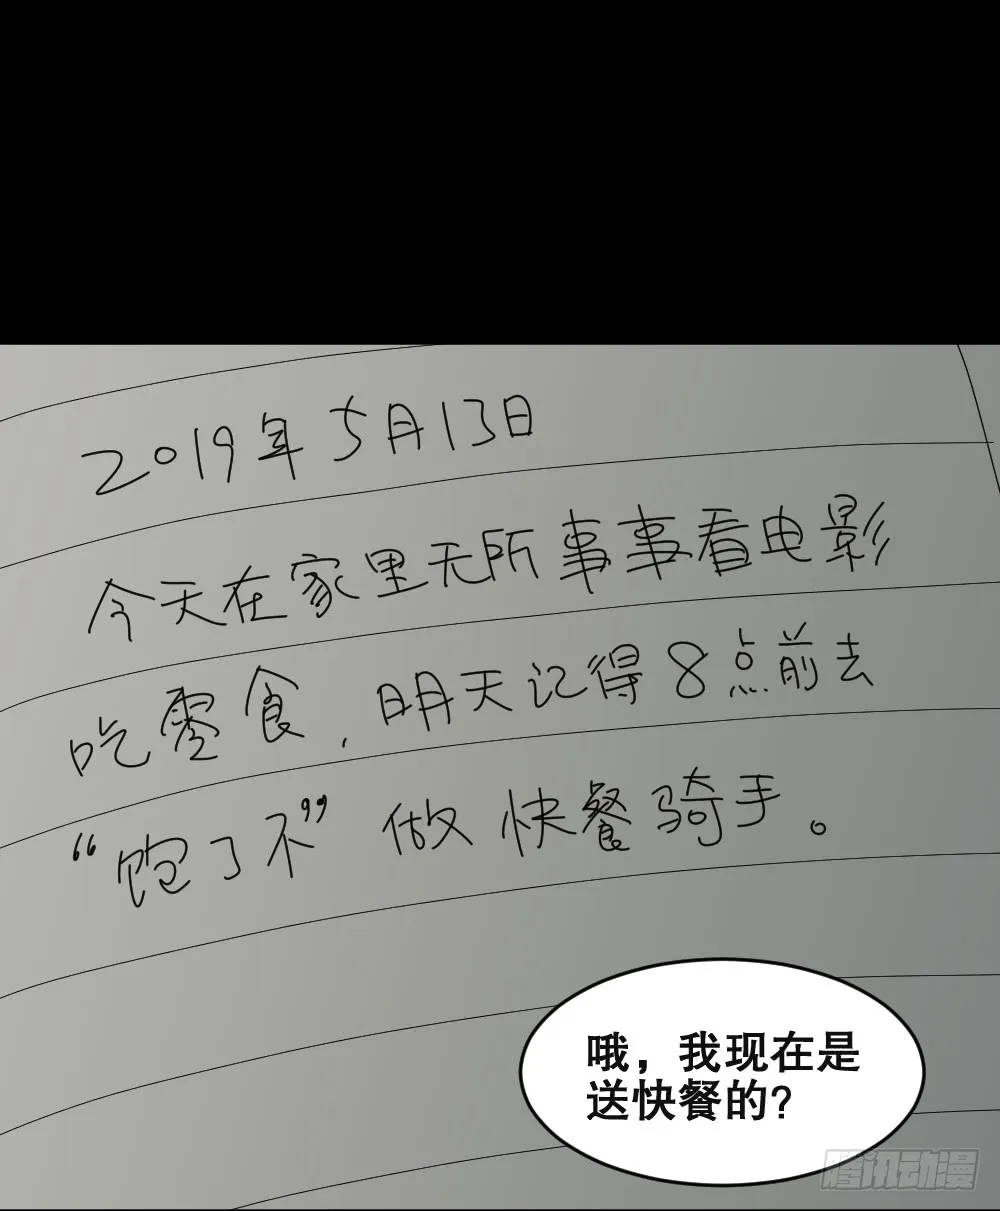 2019年5月13日
今天在家里无所事事看电影
吃零食,明天记得8点前去
“饱了不”做快餐骑手。
哦，我现在是
送快餐的?
腾讯动漫